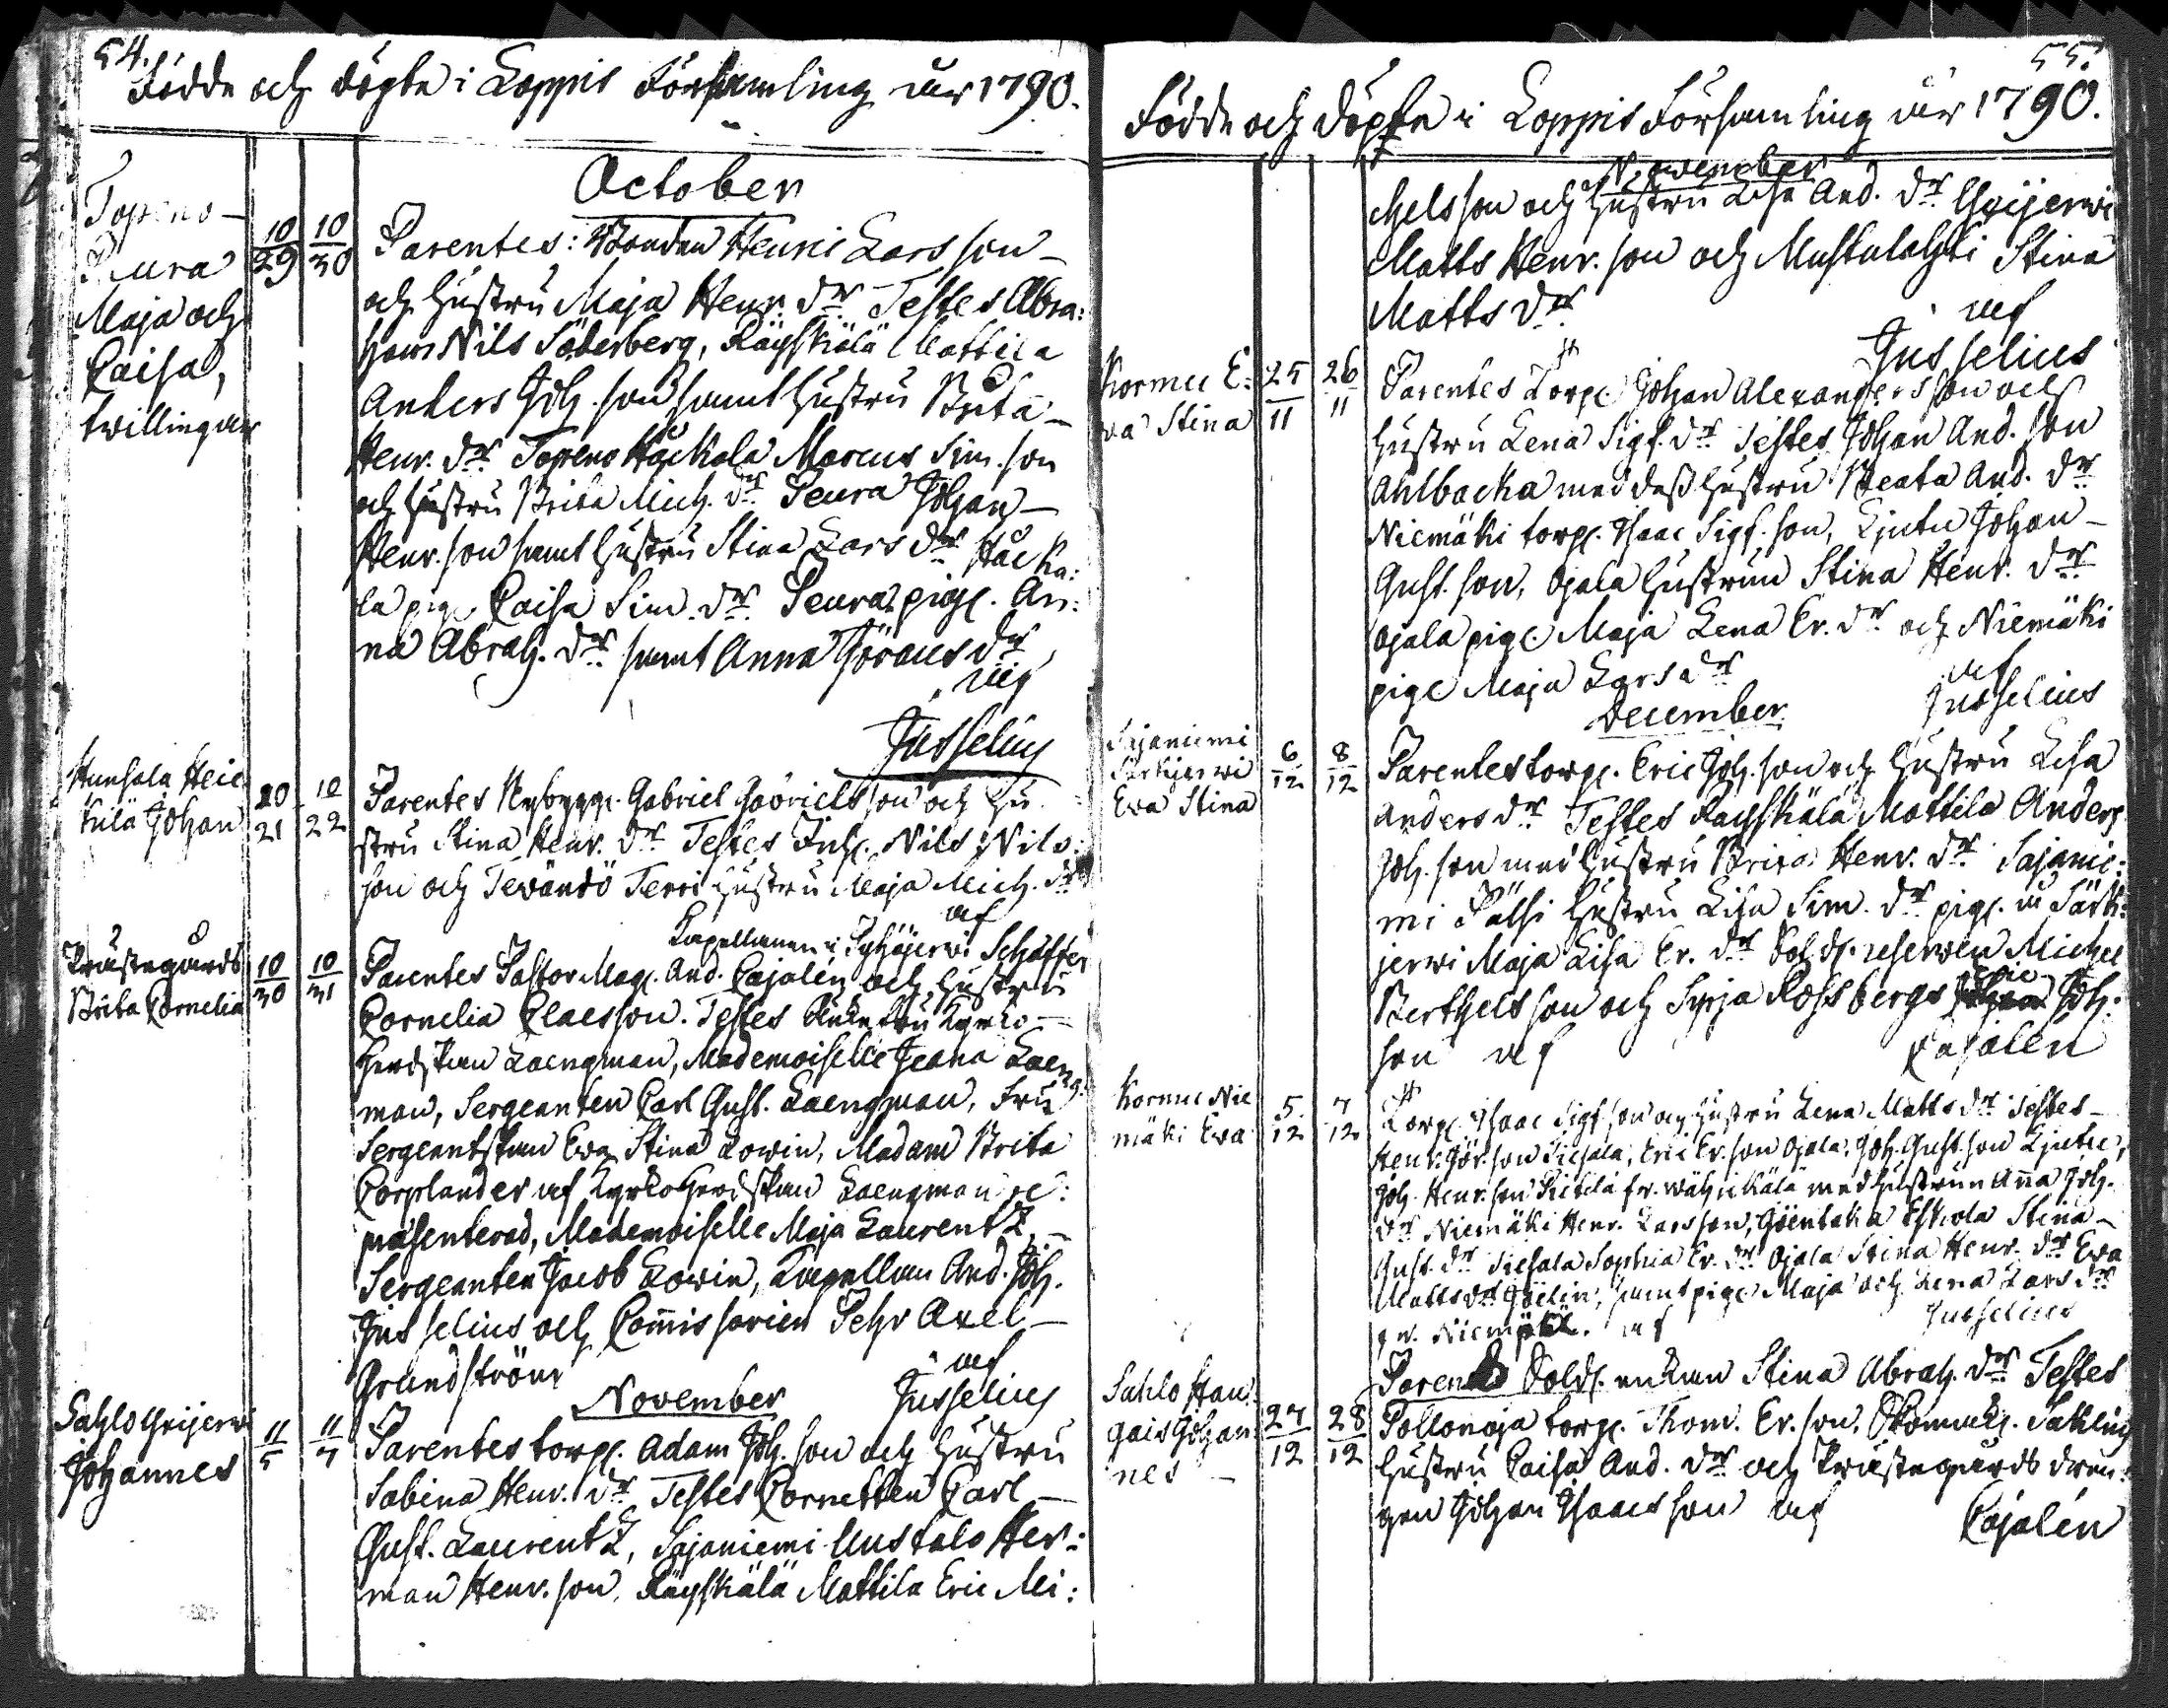 54.
Födde och döpte i Loppis Församling år 1790.
October
Topeno-
Peura
Maja och
Caisa,
twillingar
10/29 10/30
Parentes: Bonden Henric Larsson
och hustru Maja Henr. dr Testes Abra:
ham Nils Söderberg, Räyskälä Mattila
Anders Joh. son samt hustru Brita
Henr. dr Topeno Håckala Marcus Sim. son
och hustru Brita Mich. dr Peura Johan
Henr. son samt hustru Stina Lars dr Håcka:
la pig. Caisa Sim. dr Peura pig. An:
na Abrah. dr samt Anna Görans dr
af
Jusselius
Hunsala Heic
kilä Johan
10/21 10/22
Parentes Nybygg. Gabriel Gabrielsson och hu
stru Stina Henr. dr Testes Inh. Nils Nils:
son och Tevändö Terri hustru Maja Mich. dr
af
Capellanen i Pyhäjerwi Schäffer
Prästegårds
Brita Cornelia
10/30 10/31
Parentes Pastor Mag. And. Cajalén och hustru
Cornelia Claesson. Testes Enkefru Kyrko-
herdskan Laengman, Mademoiselle Jeana Laeng:
man, Sergeanten Carl Gust. Laengman, Fru
Sergeantskan Ewa Stina Lowin, Madam Brita
Corplander af Kyrkoherdskan Laengman re:
præsenterad, Mademoiselle Maja Laurentz,
Sergeanten Jacob Lowin, Capellan And. Joh.
Jusselius och Commissarien Pehr Axel
Grundström
af
Jusselius
November
Sahlo Orijerwi
Johannes
11/5 11/7
Parentes torp. Adam Joh. son och hustru
Sabina Henr. dr Testes Cornetten Carl
Gust. Laurentz, Sajaniemi Uustalo Her:
man Henr. son, Räyskälä Mattila Eric Mi:
55.
Födde och döpte i Loppis Församling år 1790.
November
chelsson och hustru Lisa And. dr Orijerwi
Matts Henr. son och Mustalahti Stina
Matts dr
af
Jusselius
Kormu E:
wa Stina
25/11 26/11
Parentes Torp. Johan Alexandersson och
hustru Lena Sigf. dr Testes Johan And. son
Ahlbacka med dess hustru Beata And. dr
Niemäki torp. Isaac Sigf. son, Ljutu Johan
Gust. son, Ojala hustrun Stina Henr. dr
Ojala pig. Maja Lena Er. dr och Niemäki
pig. Maja Lars dr
af
Jusselius
December
Sajaniemi
Särkjerwi
Ewa Stina
6/12 8/12
Parentes torp. Eric Joh. son och hustru Lisa
Anders dr Testes Räyskälä Mattila Anders
Joh. son med hustru Brita Henr. dr Sajanie:
mi Pälsi hustru Lisa Sim. dr pig. ifr Särk:
jerwi Maja Lisa Er. dr Sold. reserven Michel
Berthelsson och Syrja Rossbergs Eric Joh.
son af
Cajalén
Kormu Nie
mäki Ewa
5/12 7/12
Torp. Isaac Sigf. son och hustru Lena Matts dr Testes
Henr. Gör. son Piesala, Eric Er. son Ojala, Joh. Gust. son Ljutu,
Joh. Henr. son Pietilä fr. Wähikälä med hustrun Anna Joh.
dr Niemäki Henr. Larsson, Göentaka Eskola Stina
Gust. dr Piesala Sophia Er. dr Ojala Stina Henr. dr Ewa
Matts dr Göelin, samt pig. Maja och Lena Lars dr
fr. Niemäki. af
Jusselius
Sahlo Hau
gais Johan
nes
27/12 28/12
Parens Sold. enkan Stina Abrah. dr Testes
Pollonoja torp. Thom. Er. son, Skomak. Sahlins
hustru Caisa And. dr och Prästegårds drän:
gen Johan Isaacsson af
Cajalén